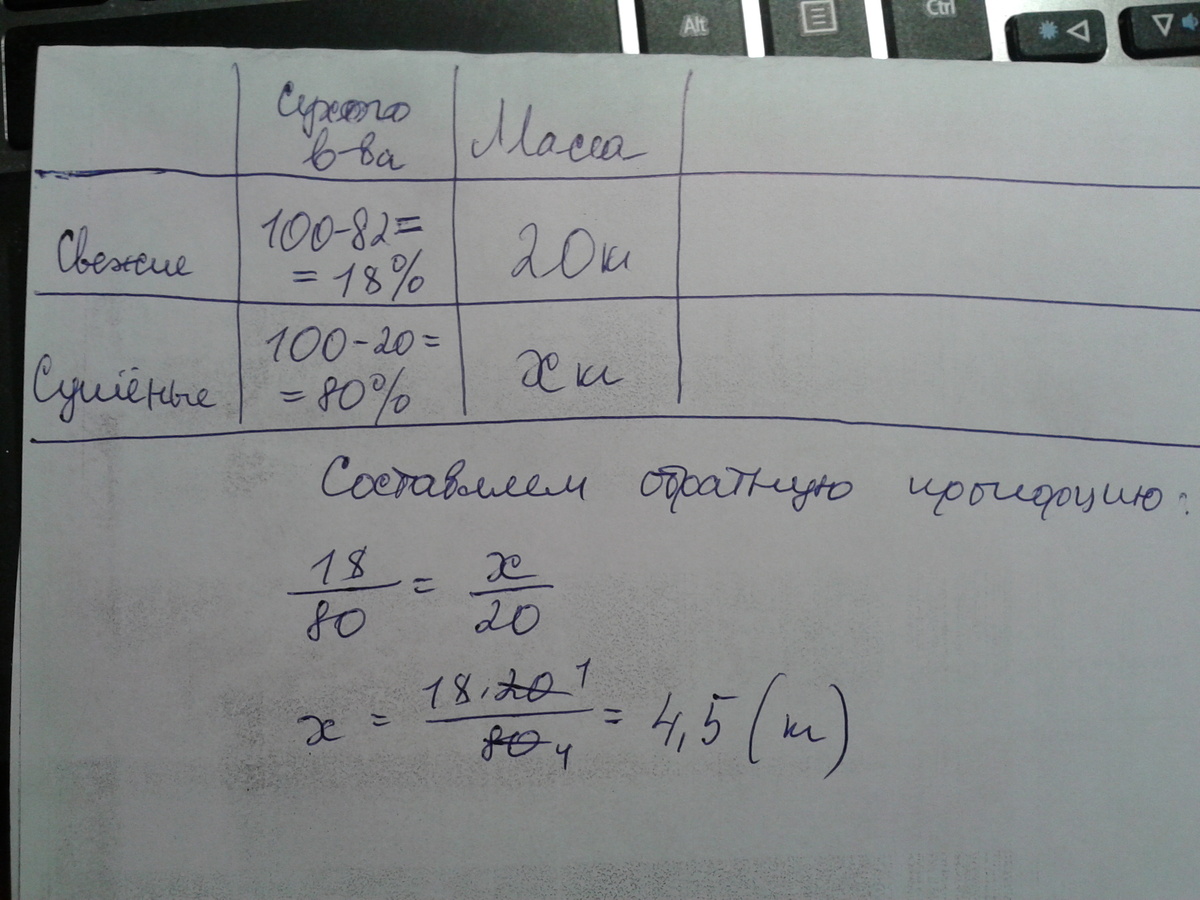 Alt
Ctrl
Сухого
в-ва
Масса
Свежие
100-82=
=18%
20 кг
Сушёные
100-20=
=80%
x кг
Составляем обратную пропорцию:
18/80 = x/20
x = 18·20 1/80 4 = 4,5 (кг)